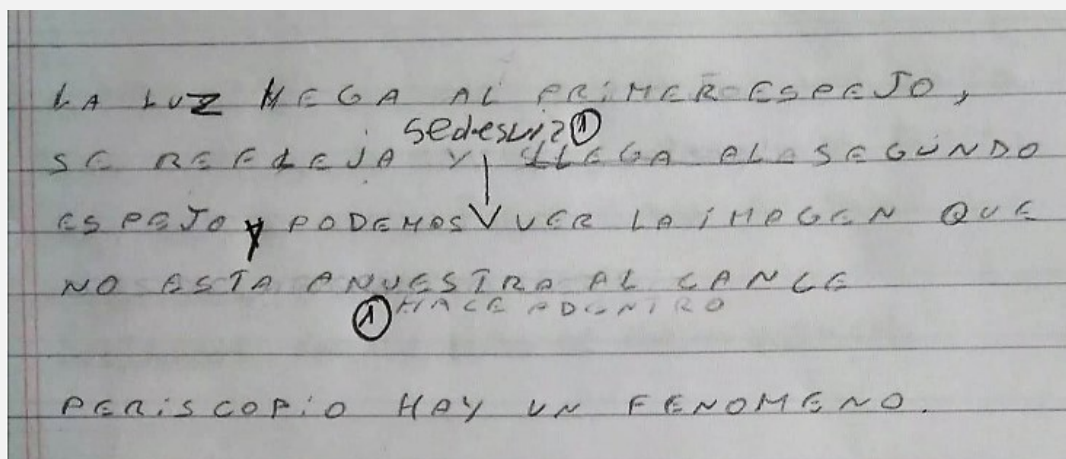 LA LUZ LLEGA AL PRIMER ESPEJO,
①
SE REFLEJA Y LLEGA AL SEGUNDO
ESPEJO Y PODEMOS VER LA IMAGEN QUE
NO ESTA A NUESTRA ALCANCE
① HACE ADENTRO
PERISCOPIO HAY UN FENOMENO.